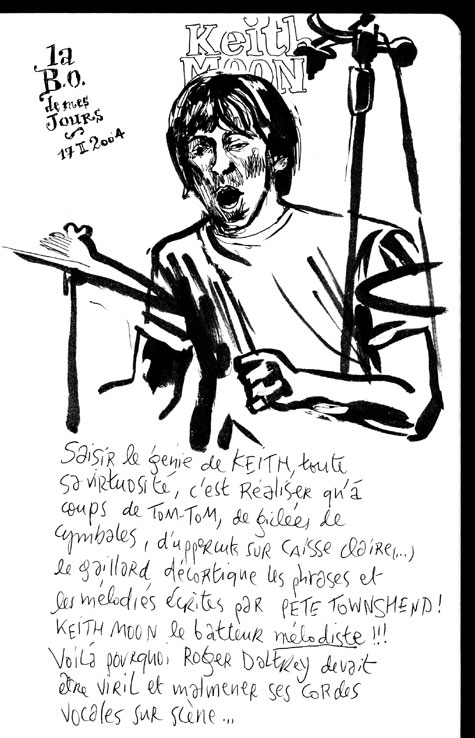 la
B.O.
de mes
JOURS
17 II 2004
Keith
MOON
Saisir le génie de KEITH, toute
sa virtuosité, c'est Réaliser qu'à
coups de TOM-TOM, de giclées de
cymbales, d'uppercuts sur caisse claire (...)
le gaillard décortique les phrases et
les mélodies écrites par PETE TOWNSHEND!
KEITH MOON le batteur mélodiste!!!
Voilà pourquoi Roger Daltrey devait
être viril et malmener ses cordes
vocales sur scène...